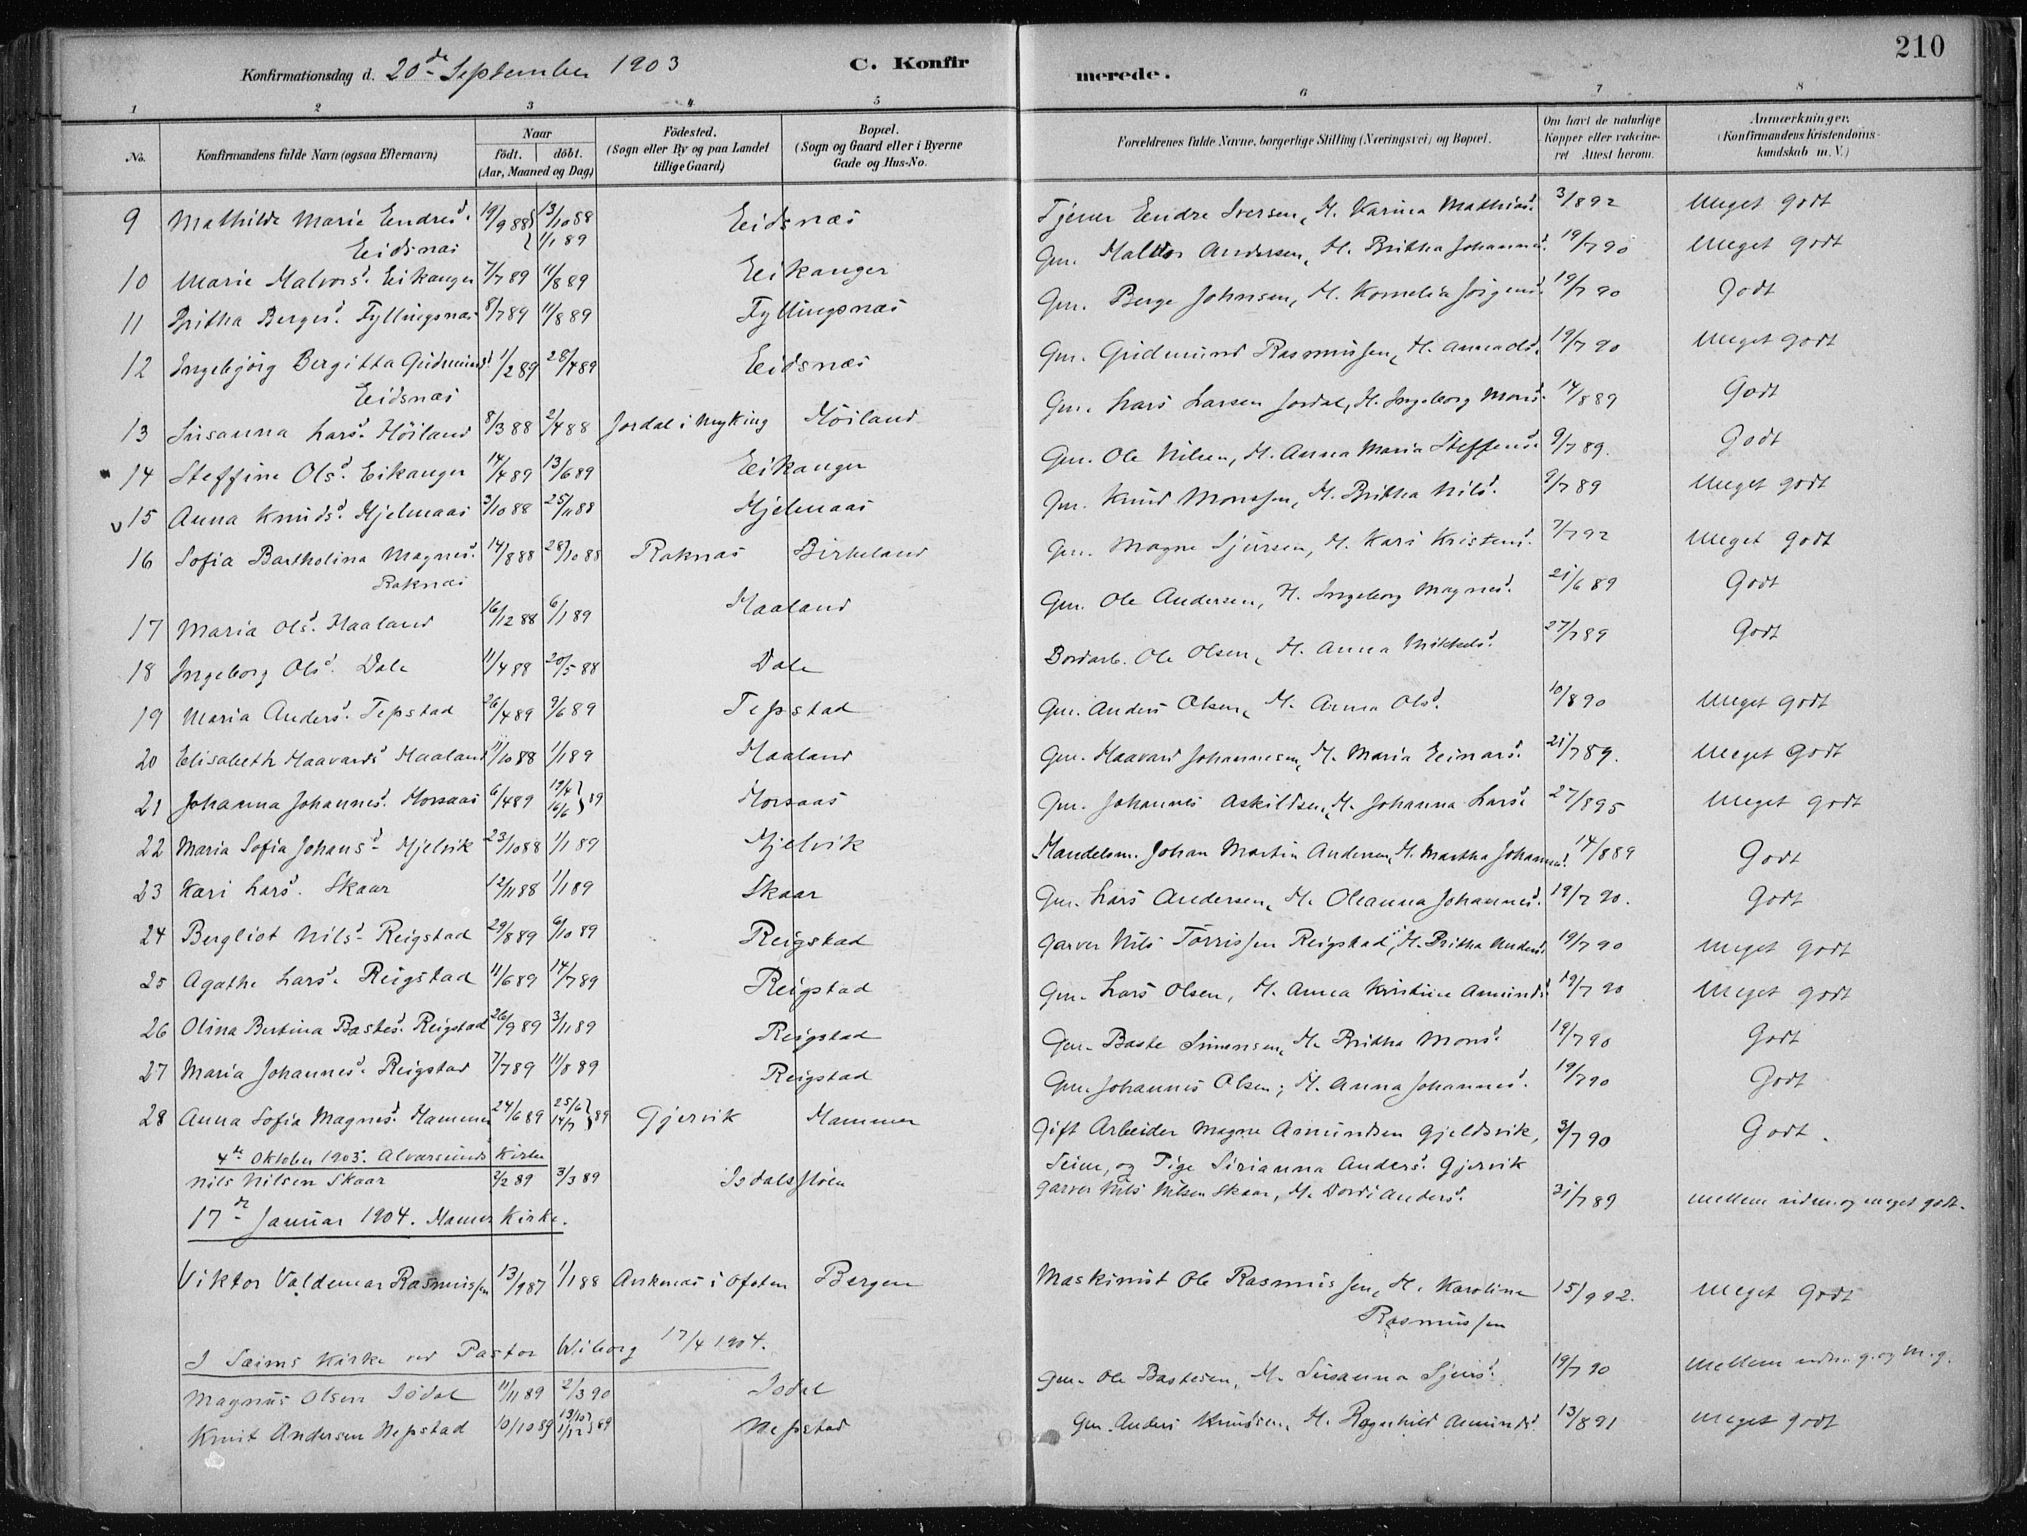 210
Konfirmationsdag d. 20de September 1903 C. Konfirmerede.
1 2 3 4 5 6 7 8
No. Konfirmandens fulde Navn (ogsaa Efternavn) Naar födt. döbt. (Aar, Maaned og Dag) Födested. (Sogn eller By og paa Landet tillige Gaard) Bopæl. (Sogn og Gaard eller i Byerne Gade og Hus-No. Forældrenes fulde Navne, borgerlige Stilling (Næringsvei) og Bopæl. Om havt de naturlige Kopper eller vaccineret Attest herom. Anmærkninger. (Konfirmandens Kristendomskundskab m. V.)
9 Mathilde Marie Endresd. 19/9 88 13/10 88 Eidsnæs Tjener Endre Iversen, H. Karina Mathiasd. 3/8 92 Meget godt
Eidsnæs 1/1 89
10 Marie Halvorsd. Eikanger 7/7 89 11/8 89 Eikanger Gm. Andersen, H. Britha Johannesd. 19/7 90 Meget godt
11 Britha Bergesd. Fyllingsnæs 8/7 89 11/8 89 Fyllingsnæs Gm. Berge Johnsen, H. Kornelia Jörgensd. 19/7 90 Godt
12 Ingebjörg Bergitta Gudmundsd. 1/2 89 28/4 89 Eidsnæs Gm. Gudmund Rasmussen, H. Anna Olsd. 19/7 90 Meget godt
Eidsnæs
13 Susanna Larsd. Höiland 8/3 88 2/4 88 Jordal i Myking Höiland Gm. Lars Larsen Jordal, H. Ingeborg Monsd. 14/8 89 Godt
14 Steffine Olsd. Eikanger 14/4 89 13/6 89 Eikanger Gm. Ole Nilsen, H. Anna Maria Steffensd. 9/7 89. Godt
v 15 Anna Knudsd. Hjelmaas 3/10 88 25/11 88 Hjelmaas Gm. Knud Monssen, H. Britha Nilsd. 9/7 89 Meget godt
16 Sofia Bartholina Magnesd. 14/8 88 28/10 88 Raknæs Birkeland Gm. Magne Sjursen, H. Kari Kristensd. 7/7 92 Meget godt
Raknæs
17 Maria Olsd. Haaland 16/12 88 6/1 89 Haaland Gm. Ole Andersen, H. Ingeborg Magnesd. 21/6 89 Godt
18 Ingeborg Olsd. Dale 11/4 88 20/5 88 Dale Bordarb. Ole Olsen, H. Anna Mikkelsd. 27/7 89 Godt
19 Maria Andersd. Tepstad 26/4 89 9/6 89 Tepstad Gm. Anders Olsen, H. Anna Olsd. 10/8 90 Meget godt
20 Elisabeth Haavardsd. Haaland 11/10 88 1/1 89 Haaland Gm. Haavard Johannesen, H. Maria Einarsd. 21/7 89. Meget godt
21 Johanna Johannesd. Horsaas 6/4 89 19/4 16/6 } 89 Horsaas Gm. Johannes Askildsen, H. Johanna Larsd. 27/8 95 Meget godt
22 Maria Sofia Johansd. Hjelvik 23/10 88 1/1 89 Hjelvik Handelsm. Johan Martin Andersen, H. Martha Johannesd. 14/8 89 Godt
23 Kari Larsd. Skaar 12/11 88 1/1 89 Skaar Gm. Lars Andersen, H. Oleanna Johannesd. 19/7 90. Godt
24 Bergliot Nilsd. Reigstad 29/8 89 6/10 89 Reigstad Garver Nils Torrissen Reigstad, H. Britha Andersd. 19/7 90 Meget godt
25 Agathe Larsd. Reigstad 11/6 89 14/7 89 Reigstad Gm. Lars Olsen, H. Anna Kristine Amundsd. 19/7 90 Meget godt
26 Olina Bertina Bastesd. Reigstad 26/9 89 3/11 89 Reigstad Gm. Baste Simonsen, H. Britha Monsd. 19/7 90 Godt
27 Maria Johannesd. Reigstad 7/7 89 11/8 89 Reigstad Gm. Johannes Olsen; H. Anna Johannesd. 19/7 90 Godt
28 Anna Sofia Magnesd. Hammer 24/6 89 25/6 14/7 } 89 Gjervik Hammer Gift Arbeider Magne Amundsen Gjeldsvik, 3/7 90 Godt.
Seim, og Pige Sirianna Andersd. Gjervik
4de Oktober 1903. Alværsunds Kirke
Nils Nilsen Skaar 2/2 89 3/3 89 Isdalstöen Garver Nils Nilsen Skaar, H. Dordi Andersd. 31/7 89 mellem udm. og meget godt.
17de Januar 1904. Hamer Kirke.
Viktor Valdemar Rasmussen 13/9 87 1/1 88 Ankenæs i Ofoten Bergen Maskinist Ole Rasmussen, H. Karoline 15/9 92. Meget Godt
Rasmussen
I Sæims Kirke ved Pastor Wiborg 17/4 1904.
Magnus Olsen Isdal 11/11 89 2/3 90 Isdal Gm. Ole Bastesen, H. Susanna Sjursd. 19/7 90 Mellem udm. g. og M. g.
Knut Andersen Nepstad 10/10 89 13/10 1/12 } 89 Nepstad Gm. Anders Knudsen, H. Ragnhild Amundsd. 13/8 91 Meget godt